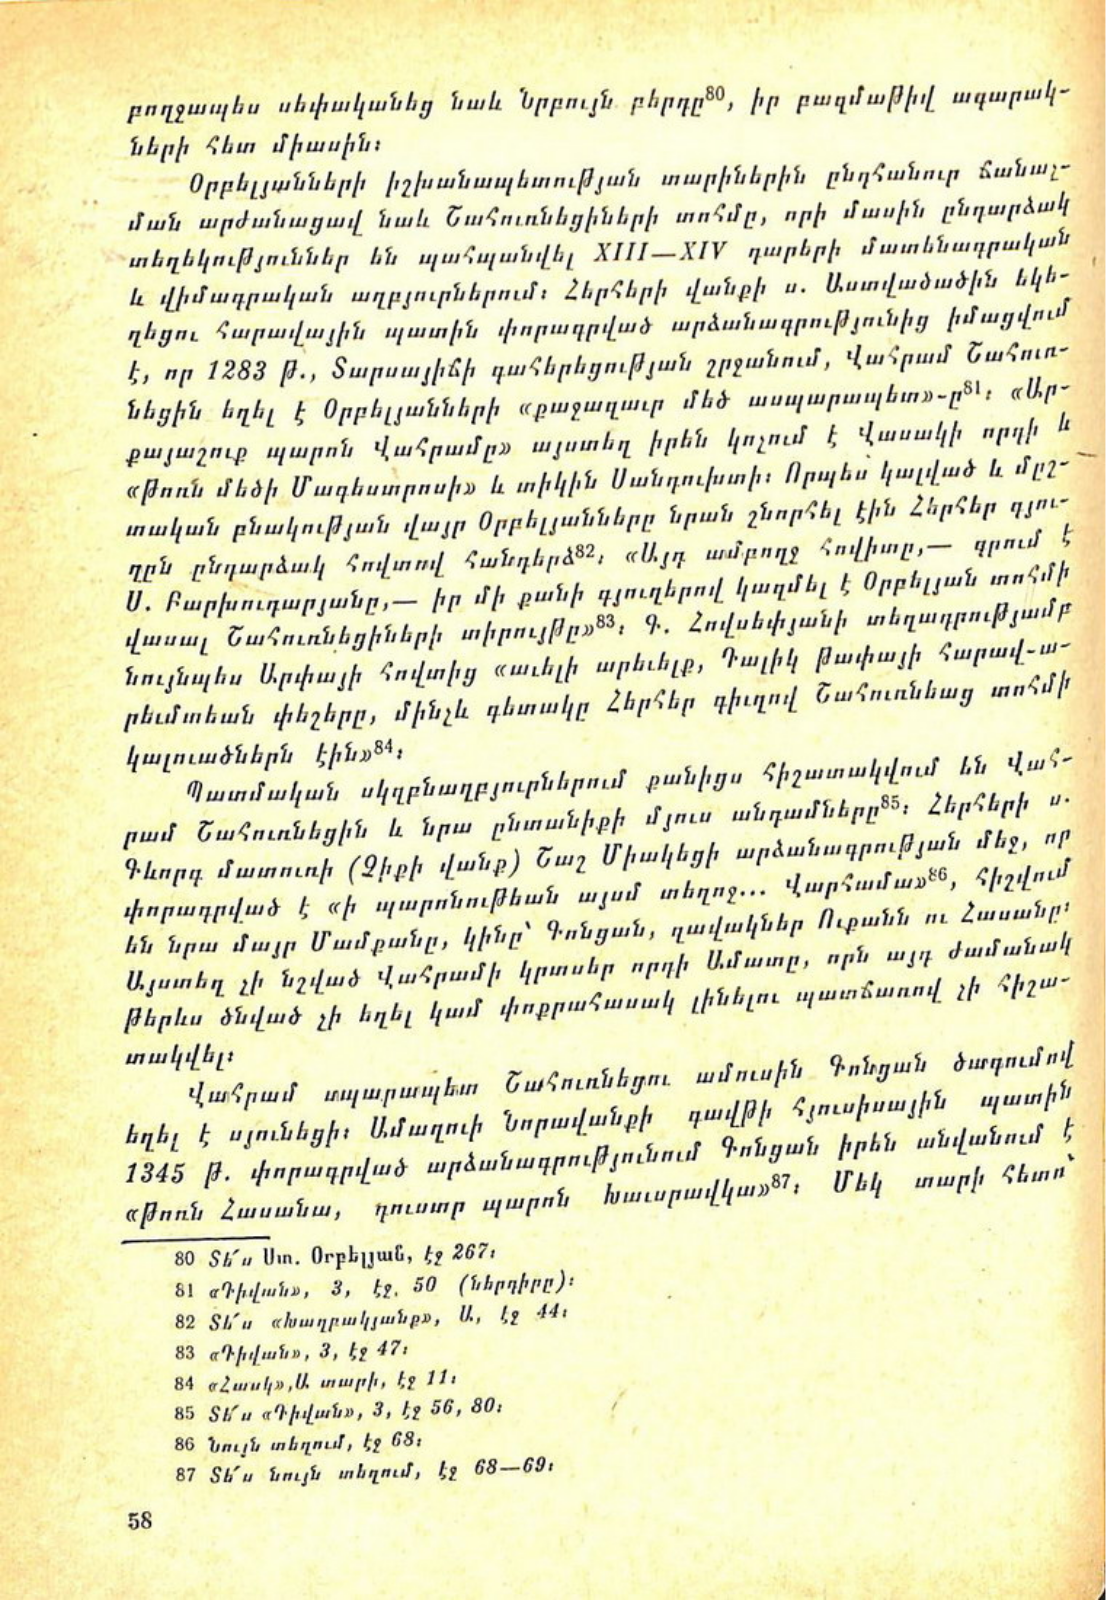 բողջապես սեփականեց նաև Նրբույն բերդը80, իր բազմաթիվ ագարակ-
ների հետ միասին։
Օրբելյանների իշխանապետության տարիներին ընդհանուր ճանաչ-
ման արժանացավ նաև Շահուռնեցիների տոհմը, որի մասին ընդարձակ
տեղեկություններ են պահպանվել XIII—XIV դարերի մատենագրական
և վիմագրական աղբյուրներում։ Հերհերի վանքի ս. Աստվածածին եկե-
ղեցու հարավային պատին փորագրված արձանագրությունից իմացվում
է, որ 1283 թ., Տարսայիճի գահերեցության շրջանում, Վահրամ Շահուռ-
նեցին եղել է Օրբելյանների «քաջաղաւր մեծ ասպարապետ»-ը81։ «Ար-
քայաշուք պարոն Վահրամը» այստեղ իրեն կոչում է Վասակի որդի և
«թոռն մեծի Մագեստրոսի» և տիկին Սանդուխտի։ Որպես կալված և մըշ-
տական բնակության վայր Օրբելյանները նրան շնորհել էին Հերհեր գյու-
ղըն ընդարձակ հովտով հանդերձ82։ «Այդ ամբողջ հովիտը,— գրում է
Ս. Բարխուդարյանը,— իր մի քանի գյուղերով կազմել է Օրբելյան տոհմի
վասալ Շահուռնեցիների տիրույթը»83։ Գ. Հովսեփյանի տեղադրությամբ
նույնպես Արփայի հովտից «աւելի արեւելք, Դալիկ թափայի հարավ-ա-
րեւմտեան փեշերը, մինչև գետակը Հերհեր գիւղով Շահուռնեաց տոհմի
կալուածներն էին»84։
Պատմական սկզբնաղբյուրներում քանիցս հիշատակվում են Վահ-
րամ Շահուռնեցին և նրա ընտանիքի մյուս անդամները85։ Հերհերի ս.
Գևորգ մատուռի (Չիքի վանք) Շաշ Միակեցի արձանագրության մեջ, որ
փորագրված է «ի պարոնութեան այսմ տեղոջ... Վարհամա»86, հիշվում
են նրա մայր Մամքանը, կինը՝ Գոնցան, զավակներ Ուքանն ու Հասանը։
Այստեղ չի նշված Վահրամի կրտսեր որդի Ամատը, որն այդ ժամանակ
թերևս ծնված չի եղել կամ փոքրահասակ լինելու պատճառով չի հիշա-
տակվել։
Վահրամ սպարապետ Շահուռնեցու ամուսին Գոնցան ծագումով
եղել է սյունեցի։ Ամաղուի Նորավանքի գավթի հյուսիսային պատին
1345 թ. փորագրված արձանագրությունում Գոնցան իրեն անվանում է
«թոռն Հասանա, դուստր պարոն Խաւսրավկա»87։ Մեկ տարի հետո՝
80 Տե՛ս Ստ. Օրբելյան, էջ 267։
81 «Դիվան», 3, էջ. 50 (ներդիրը)։
82 Տե՛ս «Խաղբակյանք», Ա, էջ 44։
83 «Դիվան», 3, էջ 47։
84 «Հասկ»,Ա տարի, էջ 11։
85 Տե՛ս «Դիվան», 3, էջ 56, 80։
86 Նույն տեղում, էջ 68։
87 Տե՛ս նույն տեղում, էջ 68—69։
58